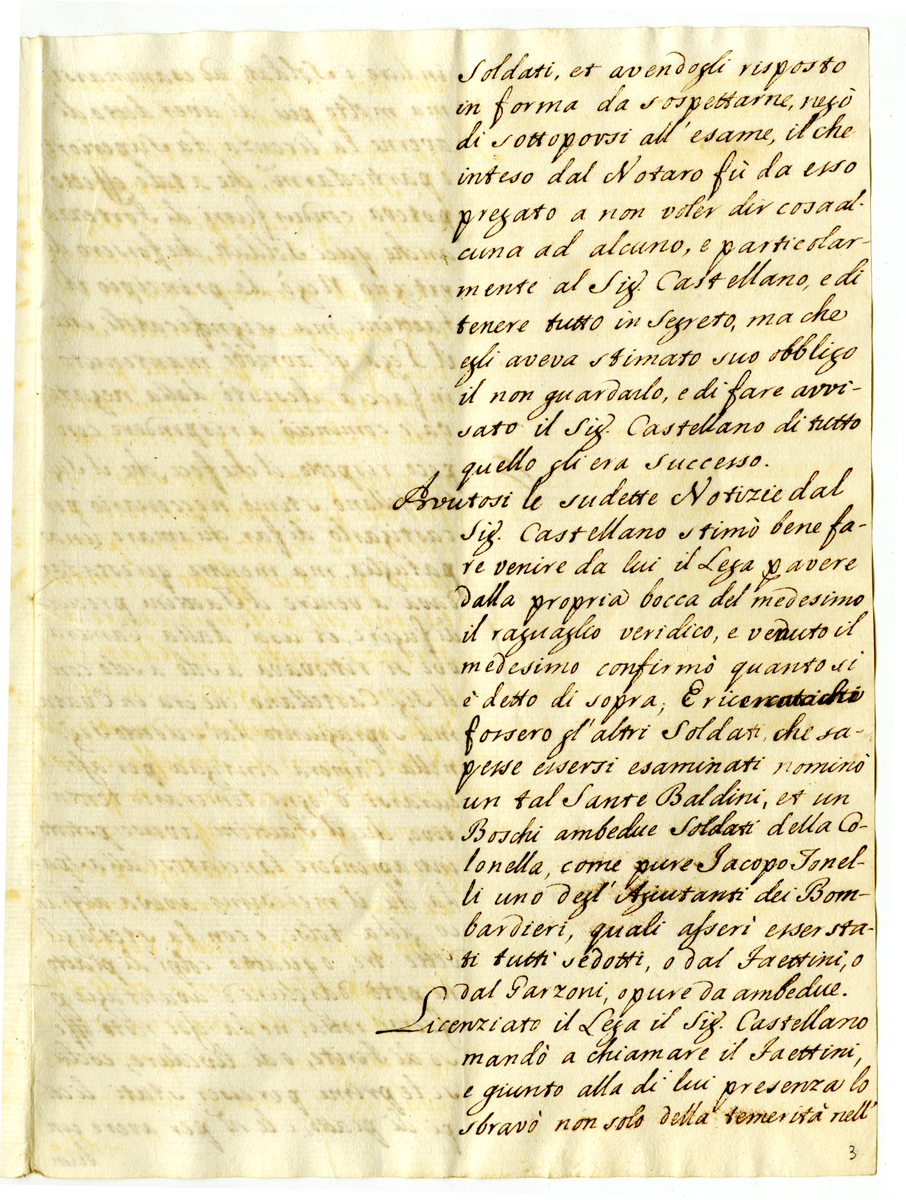 Soldati, et avendogli risposto
in forma da sospettarne, negò
di sottoporsi all'esame, il che
inteso dal Notaro fù da esso
pregato a non voler dir cosa al-
cuna ad alcuno, e particolar-
mente al Sig. Castellano, e di
tenere tutto in segreto, ma che
egli aveva stimato suo obbligo
il non guardarlo, e di fare avvi-
sato il Sig. Castellano di tutto
quello gli era successo.
Avutosi le sudette Notizie dal
Sig. Castellano stimò bene fa-
re venire da lui il Lega p avere
dalla propria bocca del medesimo
il raguaglio veridico, e venuto il
medesimo confirmò quanto si
è detto di sopra; E ricercato chi
fossero gl'altri Soldati, che sa-
pesse essersi esaminati nominò
un tal Sante Baldini, et un
Boschi ambedue Soldati della Co-
lonella, come pure Jacopo Tonel-
li uno degl'Agiutanti dei Bom-
bardieri, quali asserì esser sta-
ti tutti sedotti, o dal Faettini, o
dal Garzoni, o pure da ambedue.
Licenziato il Lega il Sig. Castellano
mandò a chiamare il Faettini,
e giunto alla di lui presenza lo
sbravò non solo della temerità nell'
3